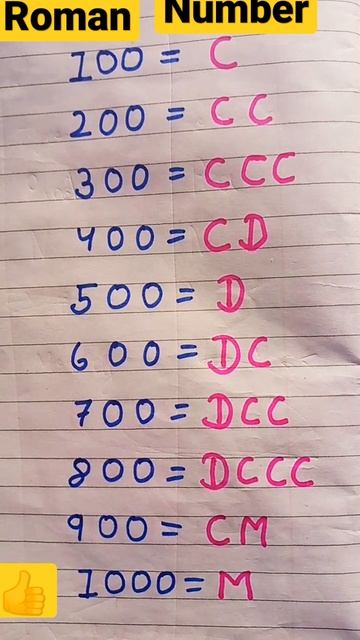 Roman Number
100 = C
200 = CC
300 = CCC
400 = CD
500 = D
600 = DC
700 = DCC
800 = DCCC
900 = CM
1000 = M